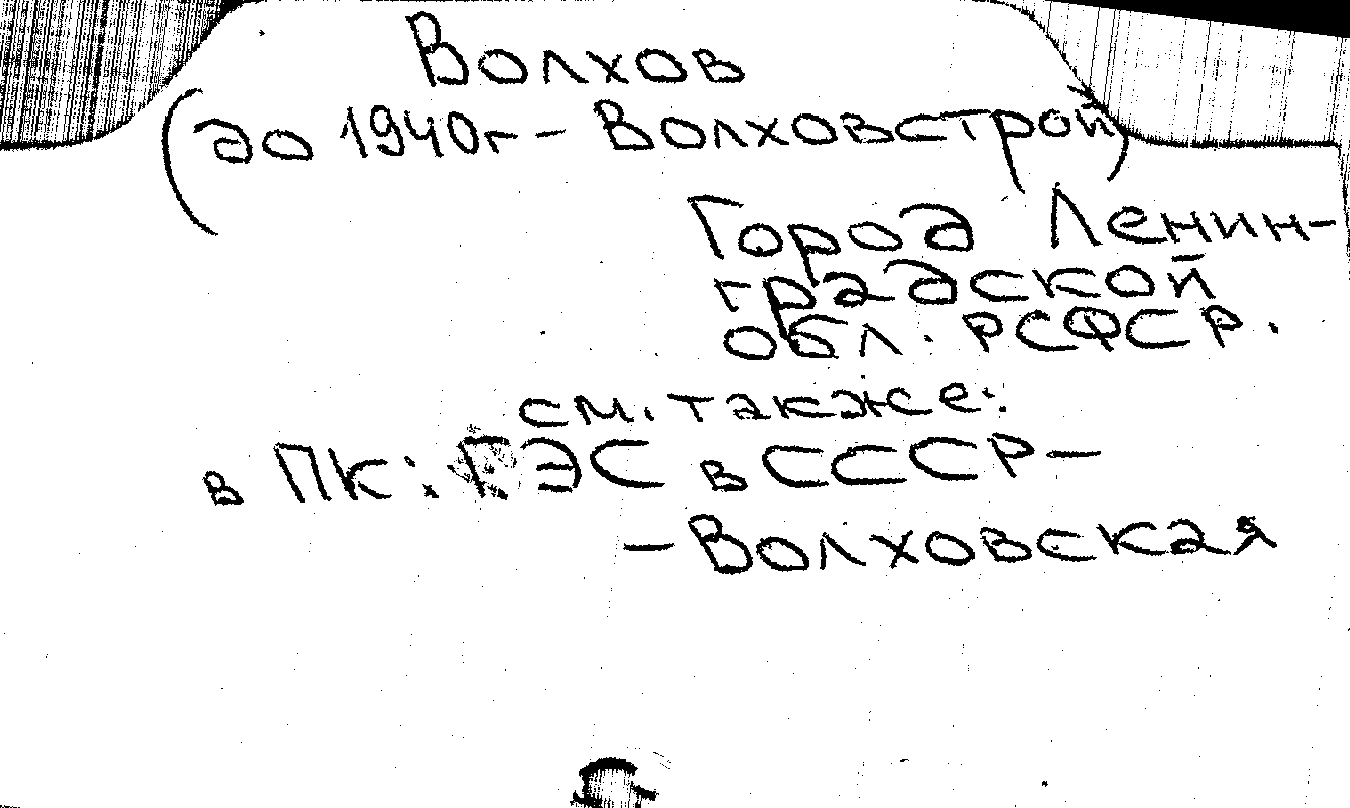 Волхов
(до 1940г - Волховстрой)
Город Ленин-
градской
обл. РСФСР.
см. также:
в ПК: ГЭС в СССР -
- Волховская